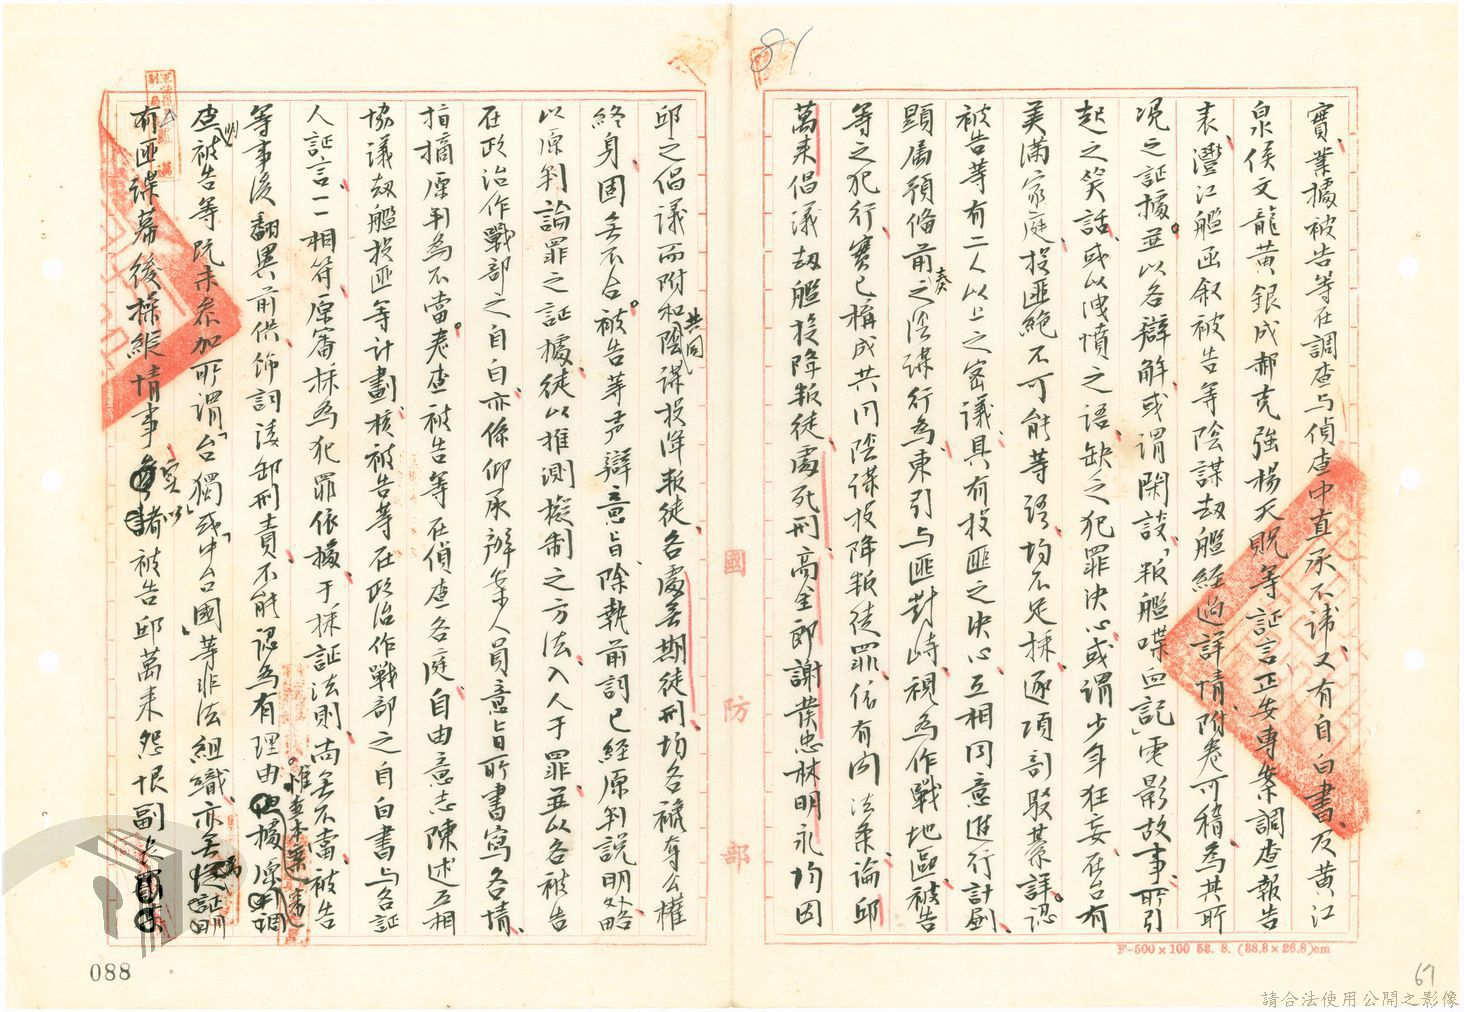 實業據被告等在調查与偵查中直承不諱、又有自白書、及黃江
泉侯文龍黃銀成郝克強楊天貺等証言正安專案調查報告
表、灃江艦函叙被告等陰謀刼艦經過詳情、附卷可稽為其所
凴之証據。並以各辯解或謂閑談「叛艦喋血記」電影故事、所引
起之笑話、或以洩憤之語、缺乏犯罪決心或謂少年狂妄、在台有
美滿家庭、投匪絶不可能等語、均不足採、逐項剖駁綦詳。認
被告等有二人以上之密議、具有投匪之決心、互相同意進行計劃
顯属預俻前奏之陰謀行為、東引与匪對峙、視為作戰地區、被告
等之犯行、實已構成共同陰謀投降叛徒罪、依有関法条、論邱
萬来倡議刼艦投降叛徒、處死刑、高金郎謝發忠林明永均因
邱之倡議而附和共同陰謀投降叛徒、各處無期徒刑、均各褫奪公權
終身、固無不合。被告等声辯意旨、除執前詞已經原判説明外、略
以原判論罪之証據、徒以推測擬制之方法、入人于罪、並以各被告
在政治作戰部之自白、亦係仰承辦案人員意旨所書寫各情、
指摘原判為不當。卷查被告等在偵查各庭、自由意志陳述互相
協議刼艦投匪等計劃、核被告等在政治作戰部之自白書与各証
人証言、一一相符、原審採為犯罪依據、于採証法則、尚無不當、被告
等事後翻異前供、飾詞諉卸刑責、不能認為有理由。惟查本案遍查原卷
查被告等既未参加所謂「台獨」或「中台國」等非法組織、亦無從証明
有匪諜幕後操縱情事、被告邱萬来怨恨副長
國防部
F-500×100 53. 8. (38.8×26.8)cm
81
67
088
請合法使用公開之影像